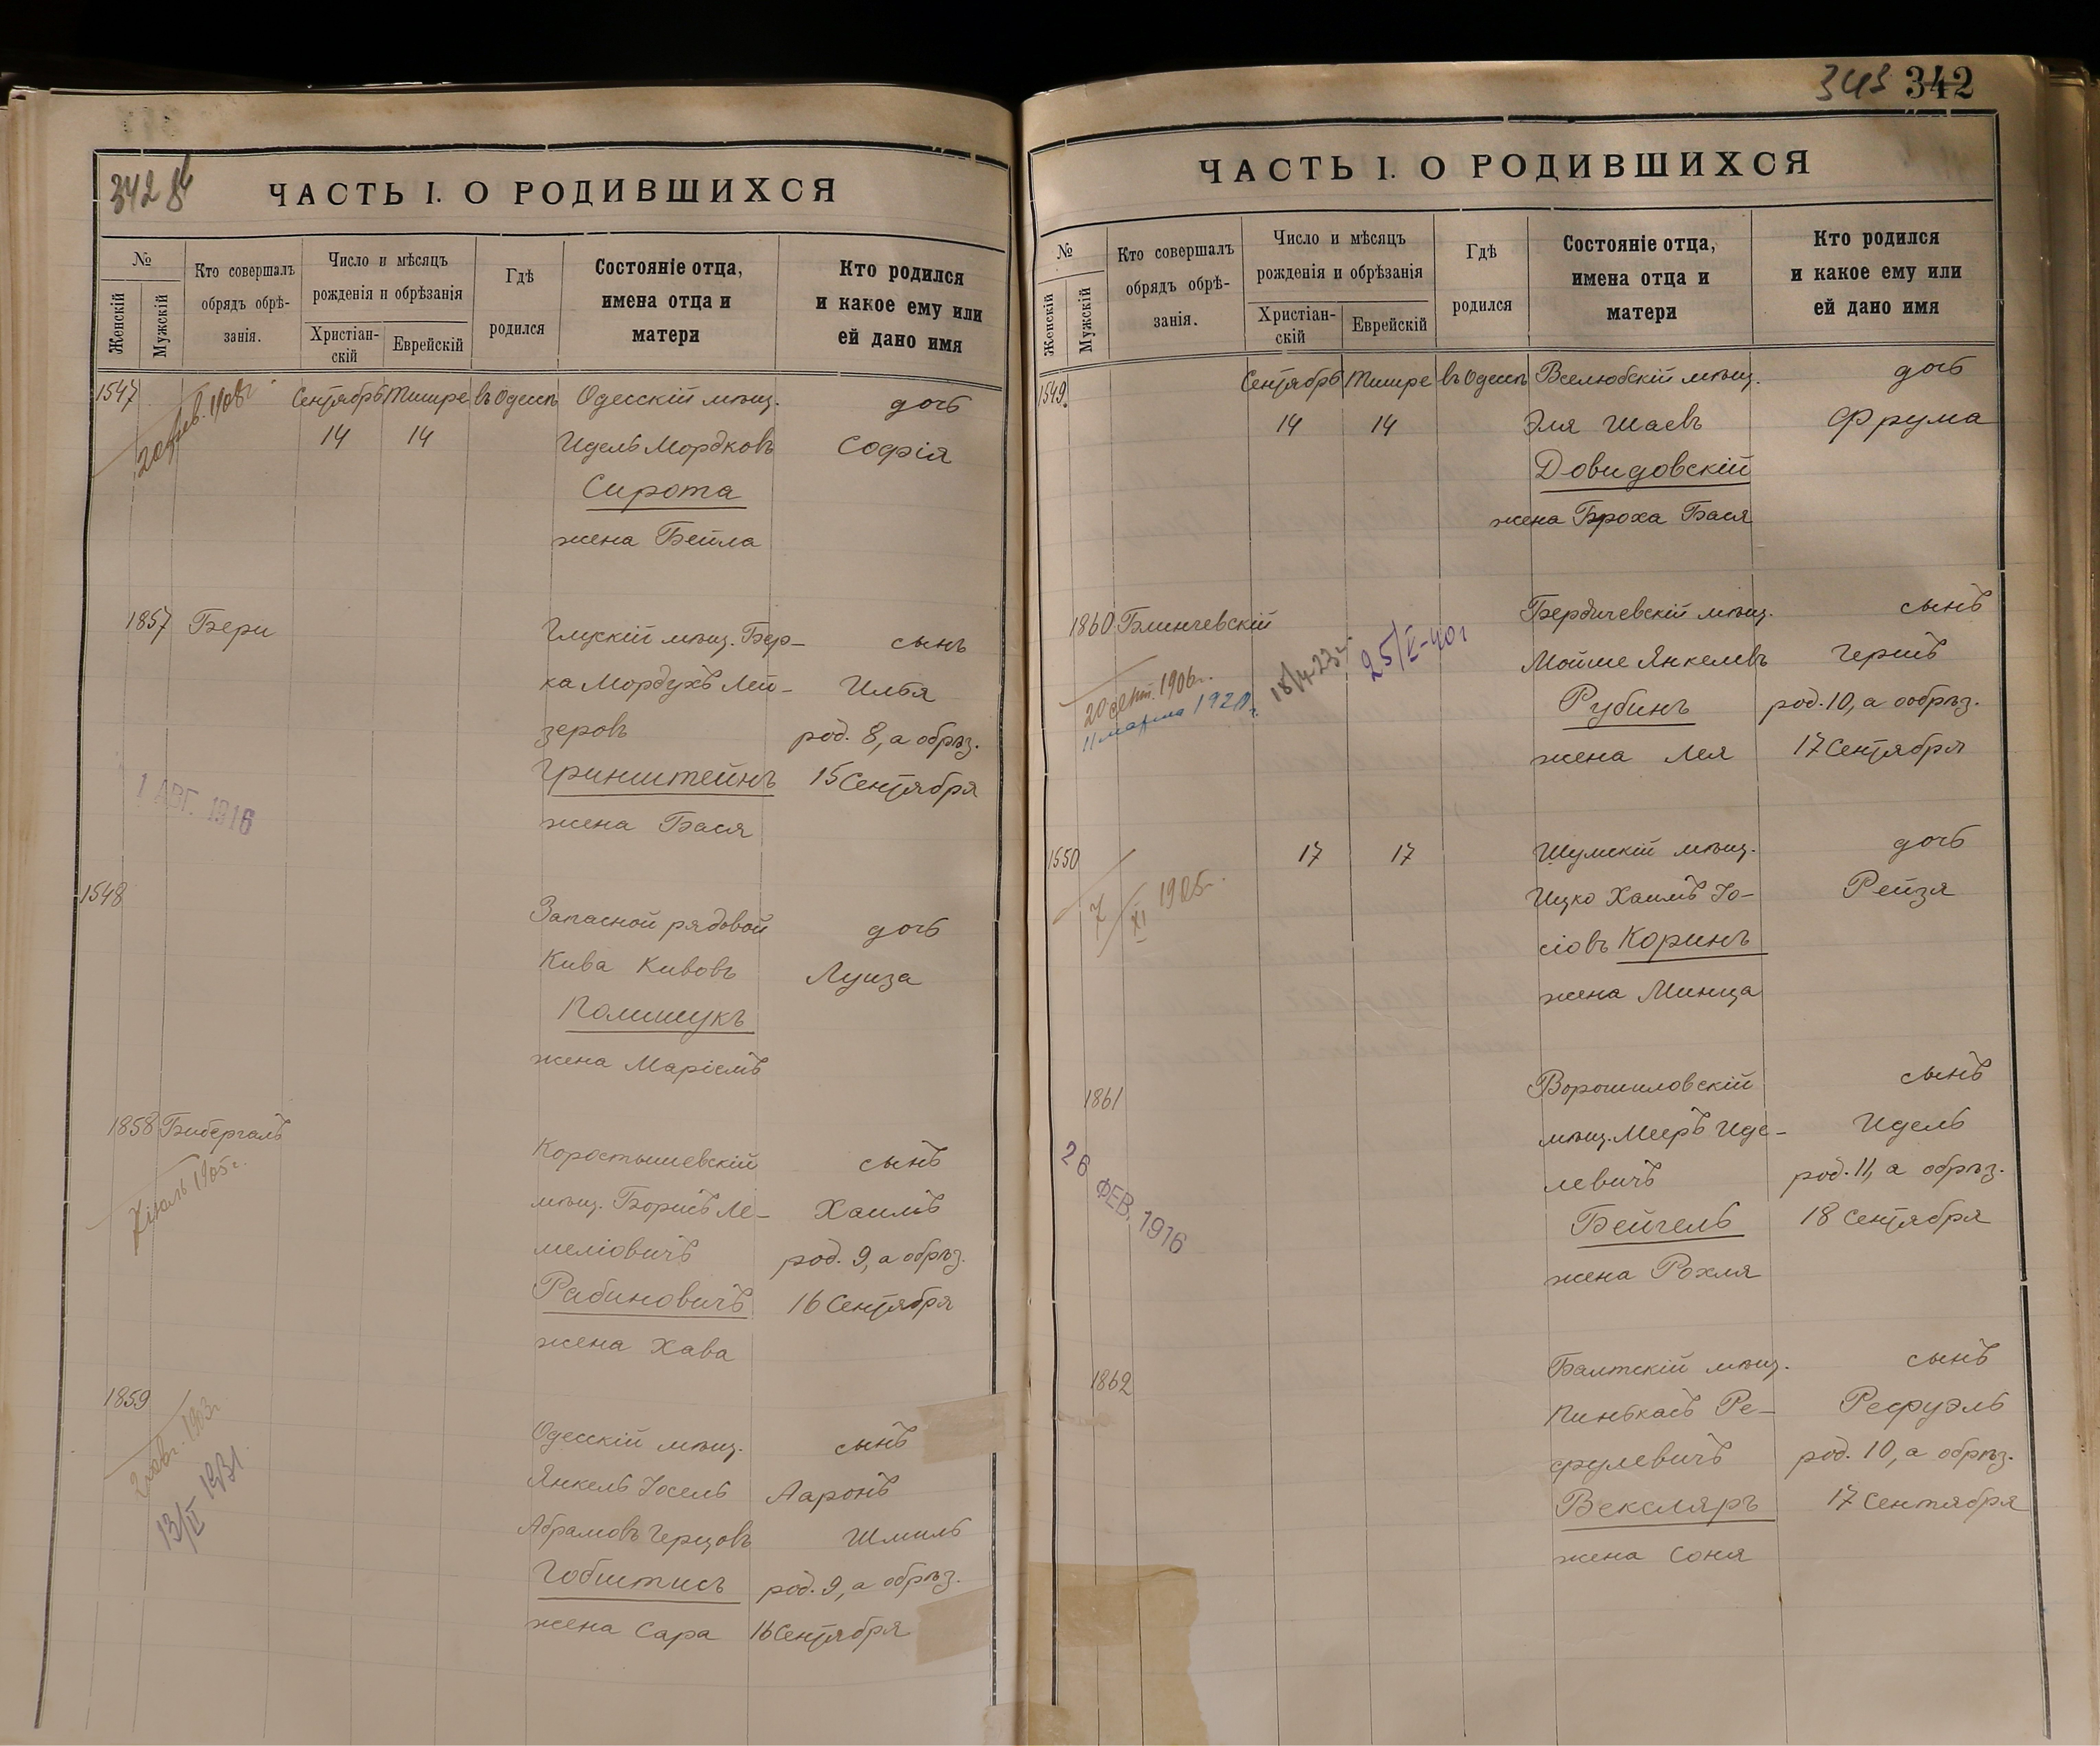 342 об
ЧАСТЬ I. О РОДИВШИХСЯ
№
Женскій
Мужскій
Кто совершалъ
обрядъ обрѣ-
занія.
Число и мѣсяцъ
рожденія и обрѣзанія
Христіан-
скій
Еврейскій
Гдѣ
родился
Состояніе отца,
имена отца и
матери
Кто родился
и какое ему или
ей дано имя
1547 Сентябрь Тишре въ Одессѣ Одесскій мѣщ. дочь
14 14 Идель Мордковъ Софія
Сирота
жена Бейла
1857 Бери Глускій мѣщ. Бер- сынъ
ка Мордухъ Лей- Илья
зеровъ род. 8, а обрѣз.
Гринштейнъ 15 Сентября
жена Бася
1 АВГ. 1916
1548 Запасной рядовой дочь
Кива Кивовъ Луиза
Полишукъ
жена Маріемъ
1858 Бибергалъ Коростышевскій сынъ
7 іюль 1905 г.
мѣщ. Борисъ Ле- Хаимъ
меліовичъ род. 9, а обрѣз.
Рабиновичъ 16 Сентября
жена Хава
1859 Одесскій мѣщ. сынъ
13/II 1931
Янкель Іосель Ааронъ
Абрамовъ Герцовъ Шмиль
Гобштисъ род. 9, а обрѣз.
жена Сара 16 Сентября
343 342
ЧАСТЬ I. О РОДИВШИХСЯ
№
Женскій
Мужскій
Кто совершалъ
обрядъ обрѣ-
занія.
Число и мѣсяцъ
рожденія и обрѣзанія
Христіан-
скій
Еврейскій
Гдѣ
родился
Состояніе отца,
имена отца и
матери
Кто родился
и какое ему или
ей дано имя
1549 Сентябрь Тишре въ Одессѣ Вселюбскій мѣщ. дочь
14 14 Эля Шаевъ Фрума
Довидовскій
жена Броха Бася
1860 Блинчевскій Бердичевскій мѣщ. сынъ
20 сент. 1906 г.
11 марта 1920 г.
25/V-40 г
Мойше Янкелевъ Гершъ
Рубинъ род. 10, а ообрѣз.
жена Лея 17 Сентября
1550 17 17 Шумскій мѣщ. дочь
7/XI 1925 г.
Ицко Хаимъ Іо- Рейзя
сіовъ Коринъ
жена Минца
1861 Ворошиловскій сынъ
26 ФЕВ. 1916
мѣщ. Мееръ Иде- Идель
левичъ род. 11, а обрѣз.
Бейгель 18 Сентября
жена Рохля
1862 Балтскій мѣщ. сынъ
Пинькасъ Ре- Рефуэль
фулевичъ род. 10, а обрѣз.
Вексляръ 17 Сентября
жена Соня